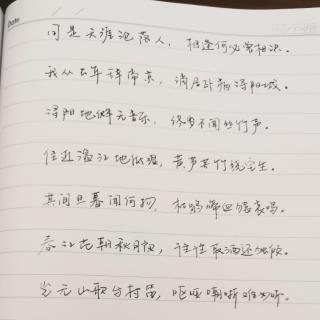 Date
同是天涯沦落人，相逢何必曾相识。
我从去年辞帝京，谪居卧病浔阳城。
浔阳地僻无音乐，终岁不闻丝竹声。
住近湓江地低湿，黄芦苦竹绕宅生。
其间旦暮闻何物，杜鹃啼血猿哀鸣。
春江花朝秋月夜，往往取酒还独倾。
岂无山歌与村笛，呕哑嘲哳难为听。